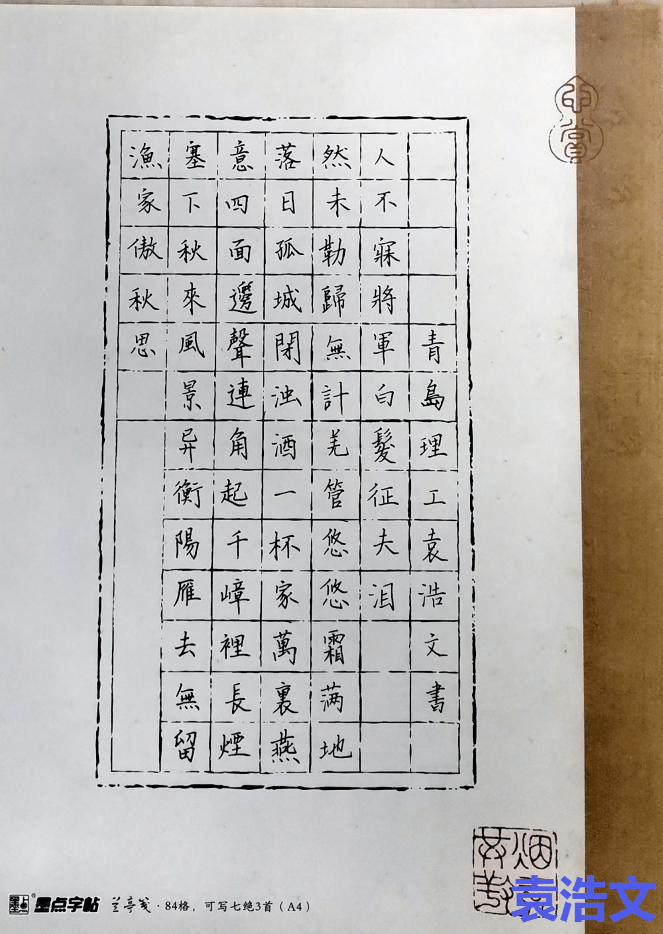 漁家傲秋思
塞下秋來風景异衡陽雁去無留
意四面邊聲連角起千嶂裡長煙
落日孤城閉浊酒一杯家萬裏燕
然未勒歸無計羌管悠悠霜满地
人不寐將軍白髮征夫泪
青島理工袁浩文書
墨点字帖 兰亭笺·84格，可写七绝3首（A4）
袁浩文